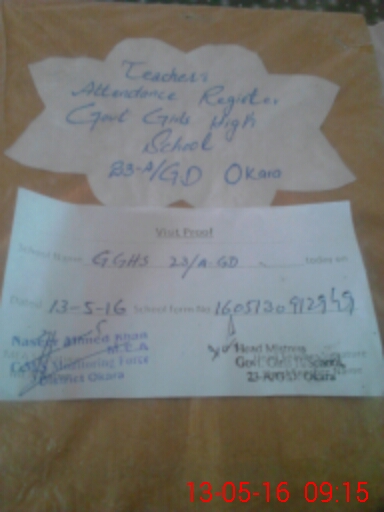 Teachers
Attendance Register
Govt Girls High
School
23-A/GD Okara
Visit Proof
School Name GGHS 23/A-GD today on
Dated 13-5-16 School form No
Naseer Ahmed Khan
M.E.A
Monitoring Force
District Okara
Head Mistress
Govt. Girls High School
Okara
13-05-16 09:15